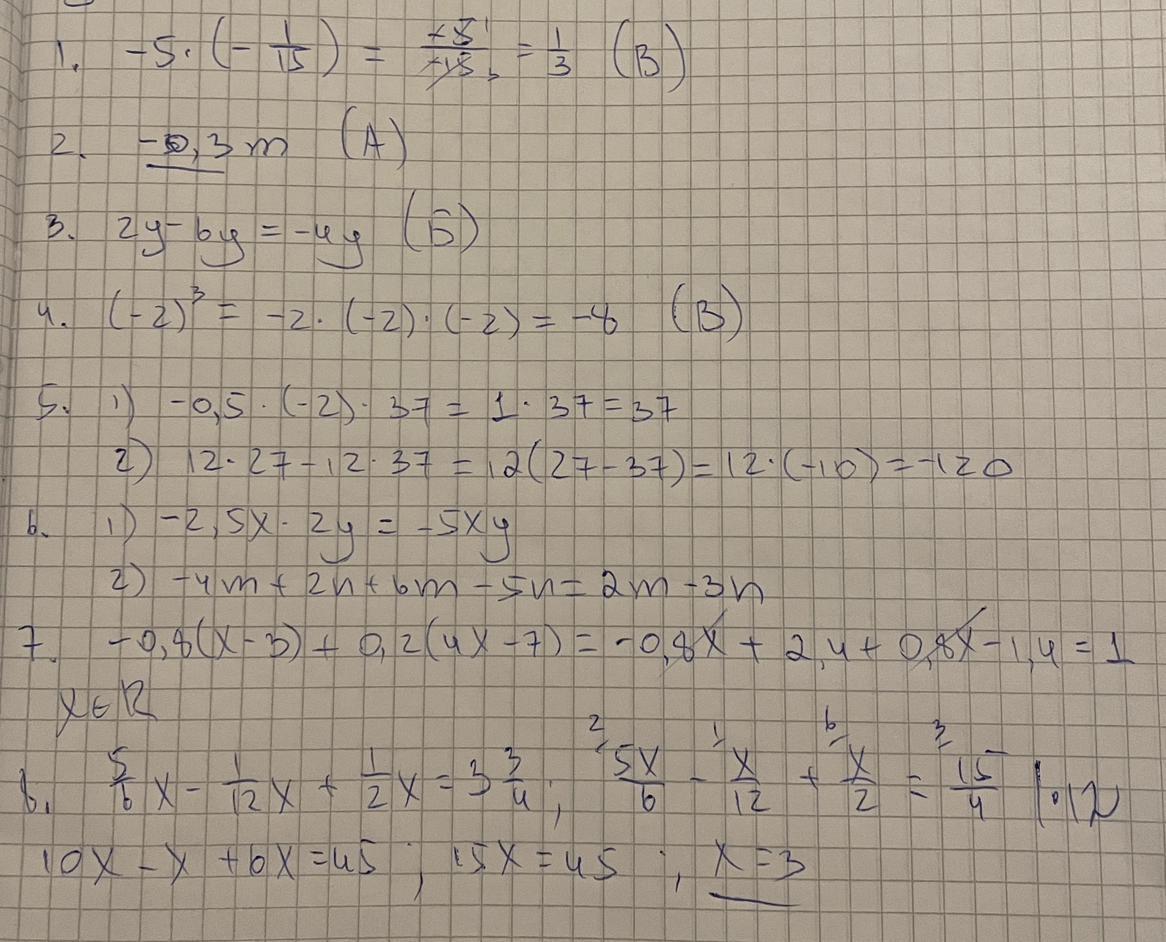 1. -5·(-1/15) = +5/+15 = 1/3 (В)
2. -0,3m (А)
3. 2y-6y=-4y (Б)
4. (-2)³ = -2·(-2)·(-2) = -8 (В)
5. 1) -0,5·(-2)·37 = 1·37=37
2) 12·27-12·37 = 12(27-37)=12·(-10)=-120
6. 1) -2,5x·2y = -5xy
2) -4m+2n+6m-5n=2m-3n
7. -0,8(x-3)+0,2(4x-7)=-0,8x+2,4+0,8x-1,4=1
x∈R
8. 5/6x-1/12x+1/2x=3 3/4; 5x/6-x/12+x/2=15/4 |·12
10x-x+6x=45; 15x=45; x=3